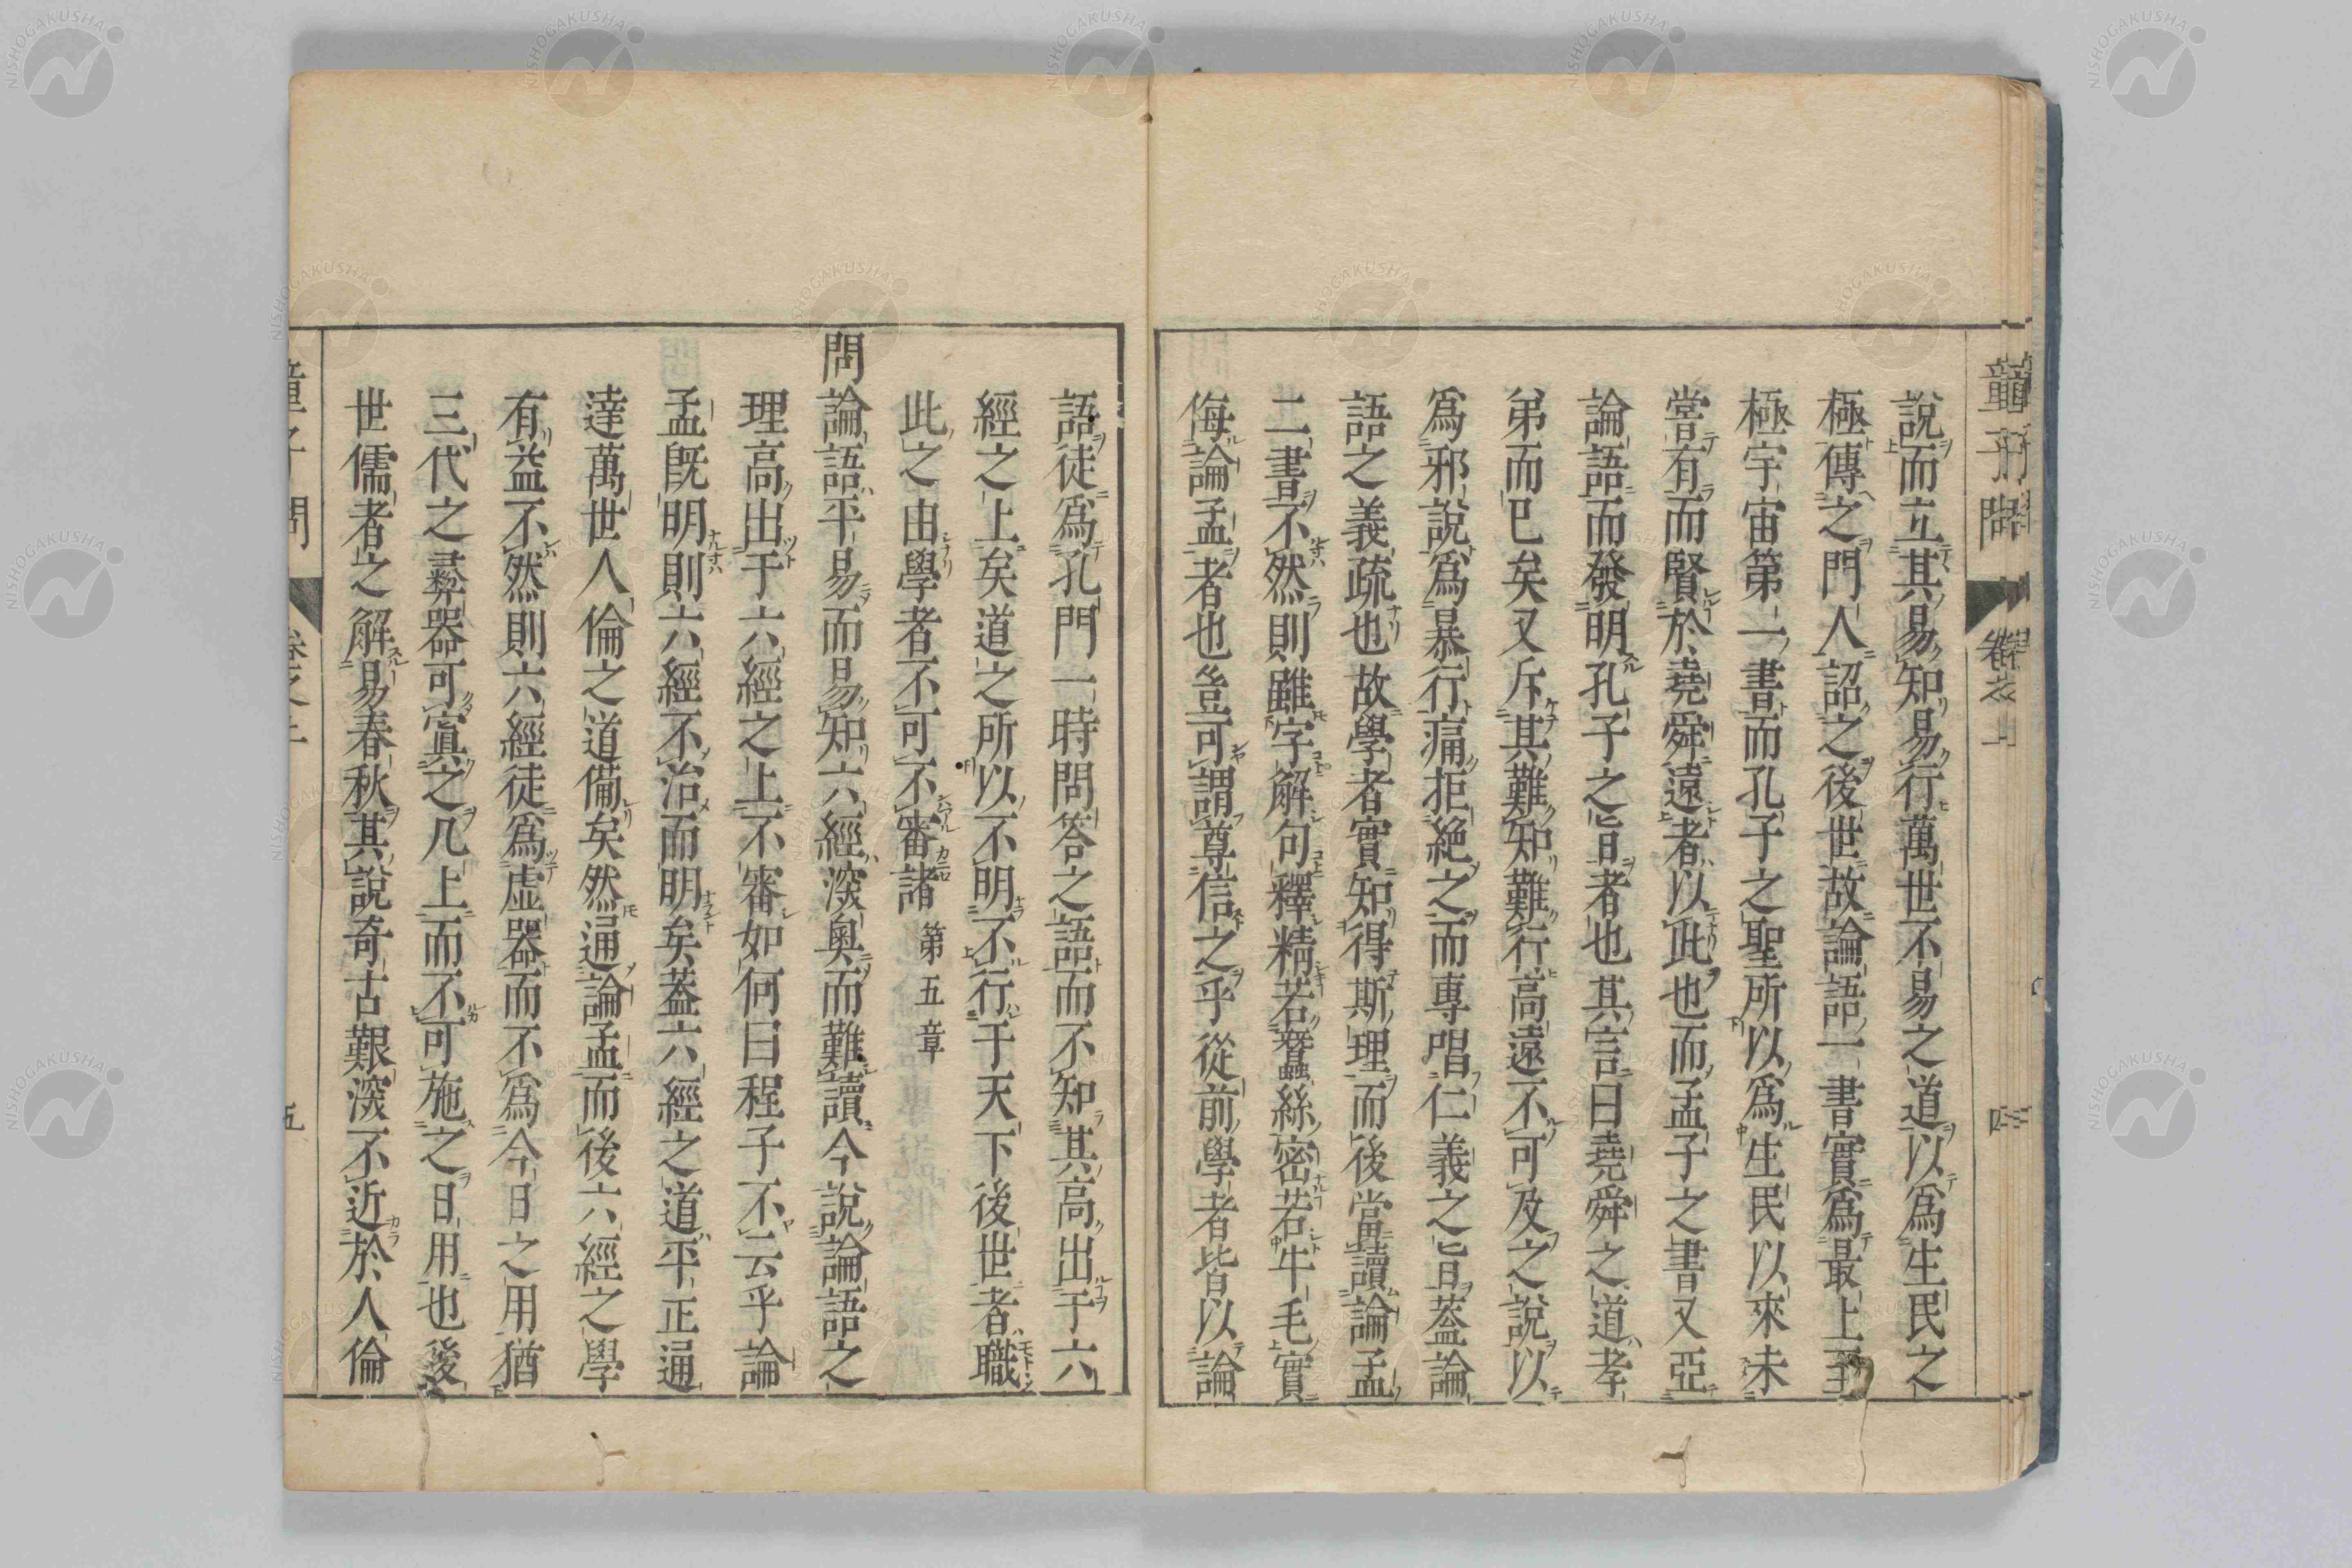 童子問 卷之上 四
說而立其易知易行萬世不易之道以爲生民之
極傳之門人詔之後世故論語一書實爲最上至
極宇宙第一書而孔子之聖所以爲生民以來未
嘗有而賢於堯舜遠者以此也而孟子之書又亞
論語而發明孔子之旨者也其言曰堯舜之道孝
弟而已矣又斥其難知難行高遠不可及之說以
爲邪說爲暴行痛拒絶之而專唱仁義之旨蓋論
語之義疏也故學者實知得斯理而後當讀論孟
二書不然則雖字解句釋精若蠶絲密若牛毛實
侮論孟者也豈可謂尊信之乎從前學者皆以論
語徒爲孔門一時問答之語而不知其高出于六
經之上矣道之所以不明不行于天下後世者職
此之由學者不可不審諸 第五章
問論語平易而易知六經深奧而難讀今說論語之
理高出于六經之上不審如何曰程子不云乎論
孟既明則六經不治而明矣蓋六經之道平正通
達萬世人倫之道備矣然通論孟而後六經之學
有益不然則六經徒爲虛器而不爲今日之用猶
三代之彝器可寘之几上而不可施之日用也後
世儒者之解易春秋其說奇古艱深不近於人倫
童子問 卷之上 五
NISHOGAKUSHA